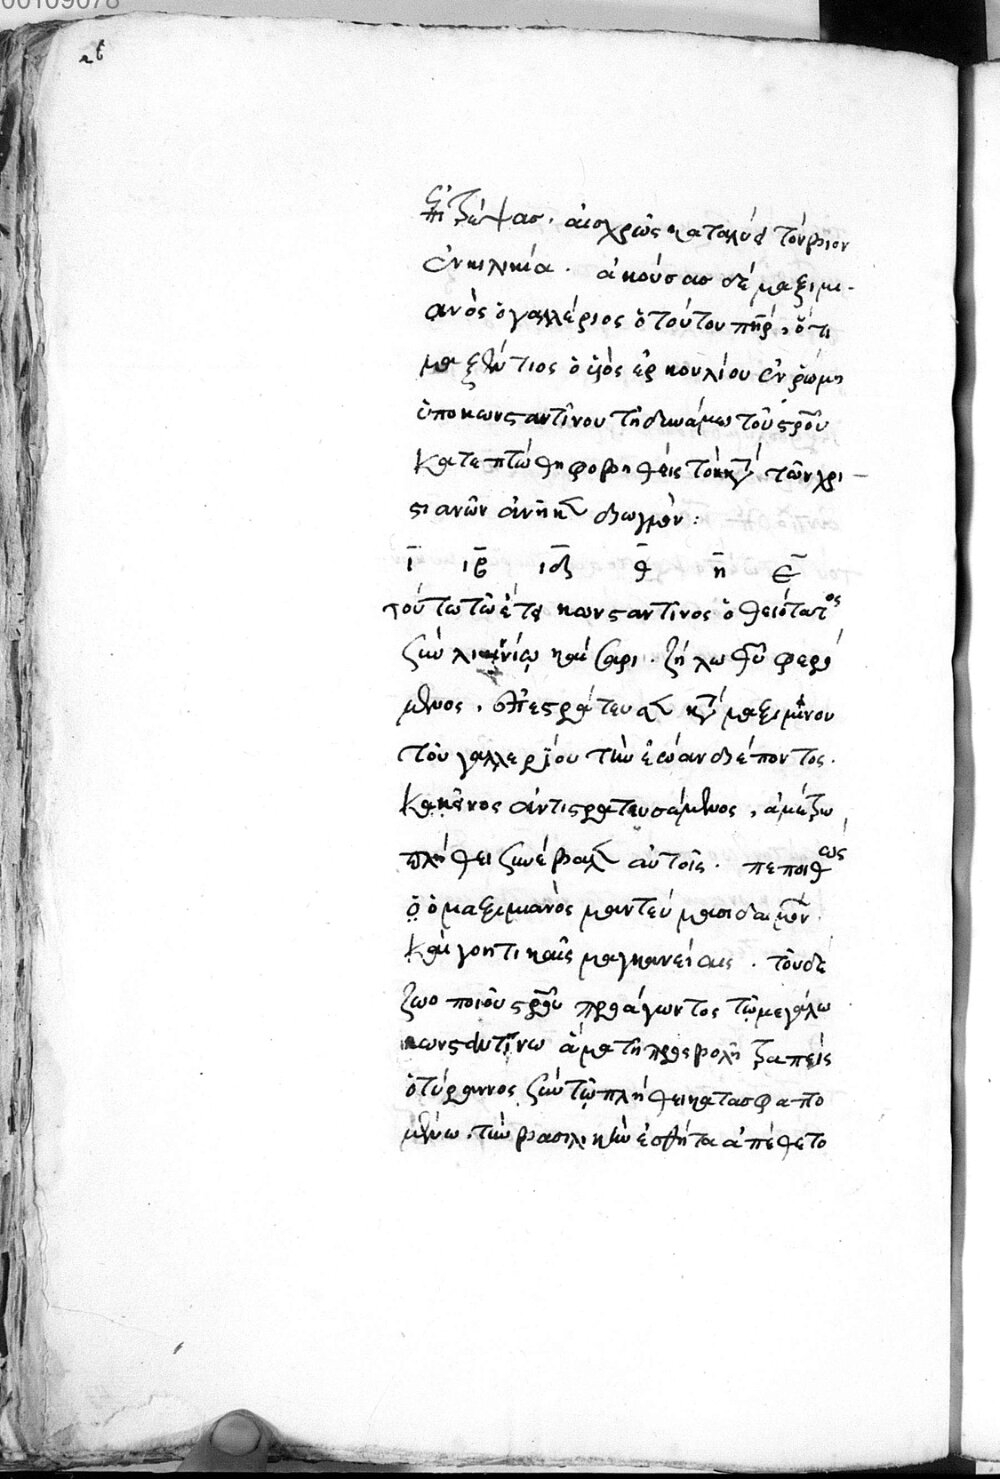 00109078
ἐπιζεύξας. αἰσχρῶς καταλύει τὸν βίον
ἐν κιλικία. ἀκούσας δὲ μαξιμι-
ανὸς ὁ γαλλέριος ὁ τούτου πηρ, ὅτι
μαξέντιος ὁ υἱὸς ἑρκουλίου ἐν ῥώμη
ὑπὸ κωνσταντίνου τῆ δυνάμει τοῦ στρου
κατεπτώθη φοβηθεὶς τὸν κατὰ τῶν χρι-
στιανῶν ἀνῆκε διωγμὸν:
ι ιβ ιδ θ η ε
τούτω τῶ ἔτει κωνσταντῖνος ὁ θειότατος
σὺν λικινίω καίσαρι. ζήλω θυ φερό
μενος, ἐπεστράτευσε κατὰ μαξιμίνου
τοῦ γαλλερίου τὴν ἑώαν διέποντος.
κἀκεῖνος ἀντιστρατευσάμενος, ἀμέτρω
πλήθει συνέβαλε αὐτοῖς. πεποιθὼς
ὁ μαξιμιανὸς μαντεύμασι δαιμόνων
καὶ γοητικαῖς μαγγανείαις. τοῦ δὲ
ζωοποιοῦ στρου προάγωντος τῶ μεγάλω
κωνσταντίνω ἅμα τῆ προσβολῆ τραπεὶς
ὁ τύραννος σὺν τῶ πλήθει κατασφαττο
μένω. τὴν βασιλικὴν ἐσθῆτα ἀπέθετο